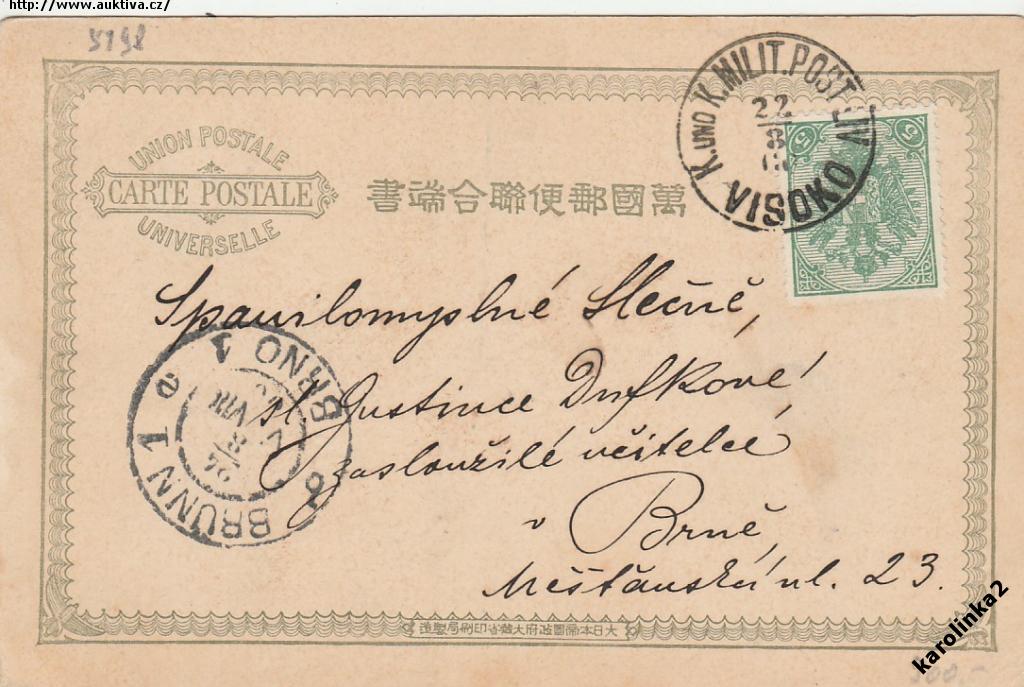 http://www.auktiva.cz/
5798
UNION POSTALE
CARTE POSTALE
UNIVERSELLE
書端合聯便郵國萬
K. UND K. MILIT. POST
22
8
VISOKO
5 5
Spanilomyslné Slečně,
sl. Justince Dufkové
zasloužilé učitelce
v Brně,
Měšťanská ul. 23.
BRNO 1
BRÜNN 1
e
24
VIII
大日本帝國政府大藏省印刷局製造
karolinka2